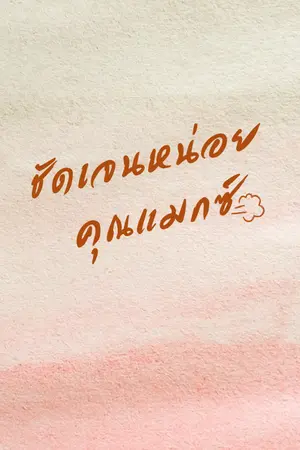 ชัดเจนหน่อย
คุณแมกซ์